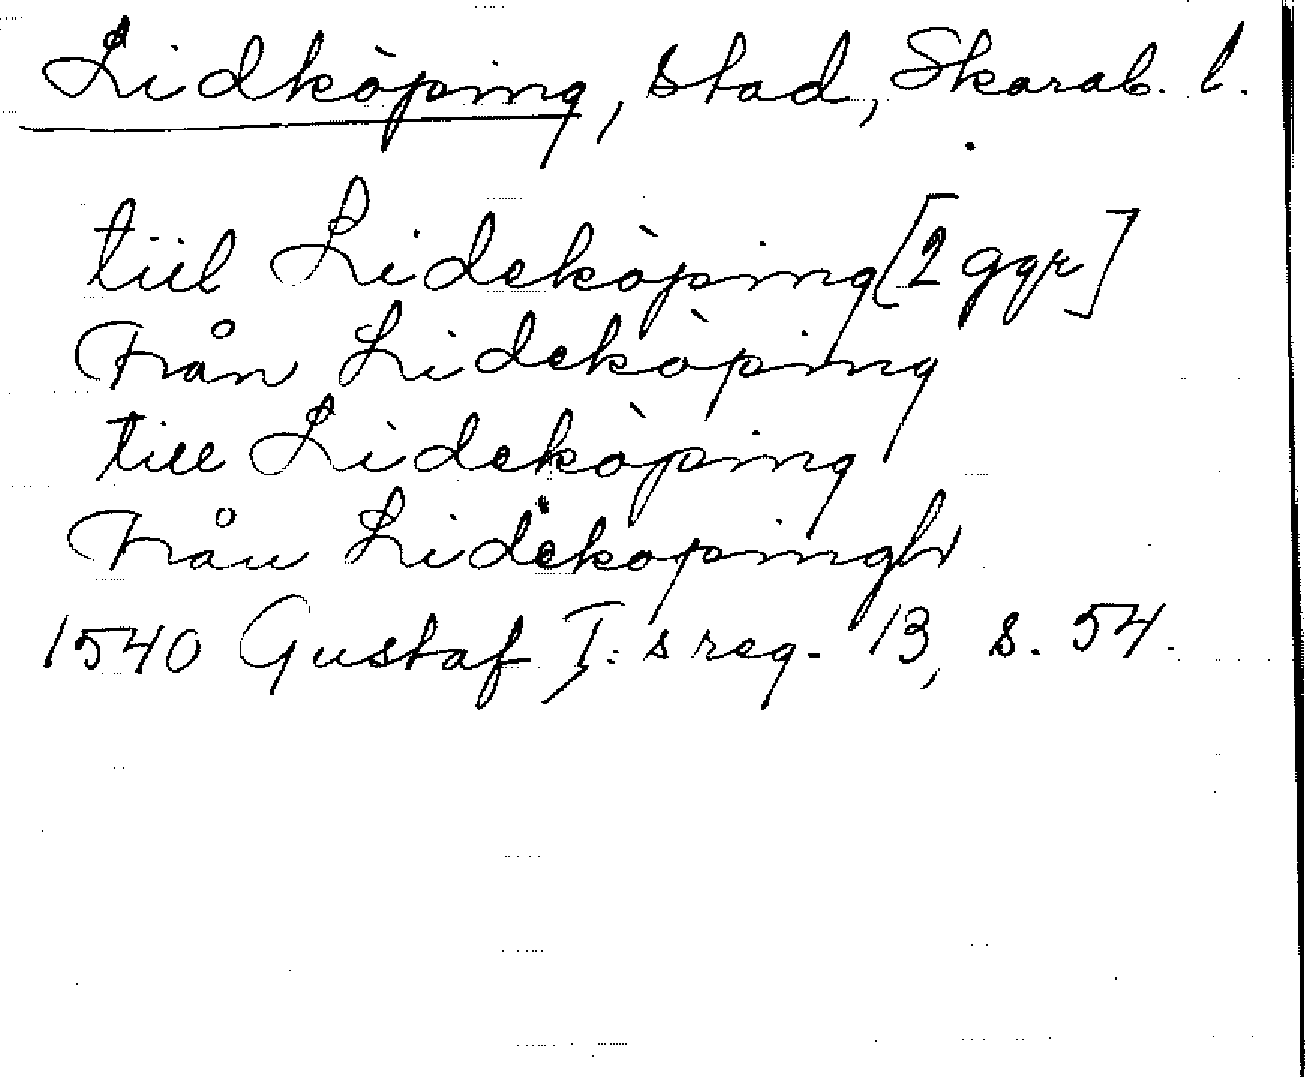 Lidköping, stad, Skarab. l.
tiil Lideköping [2 ggr]
Från Lideköping
till Lideköping
Från Lideköpingh
1540 Gustaf I:s reg. 13, s. 54.